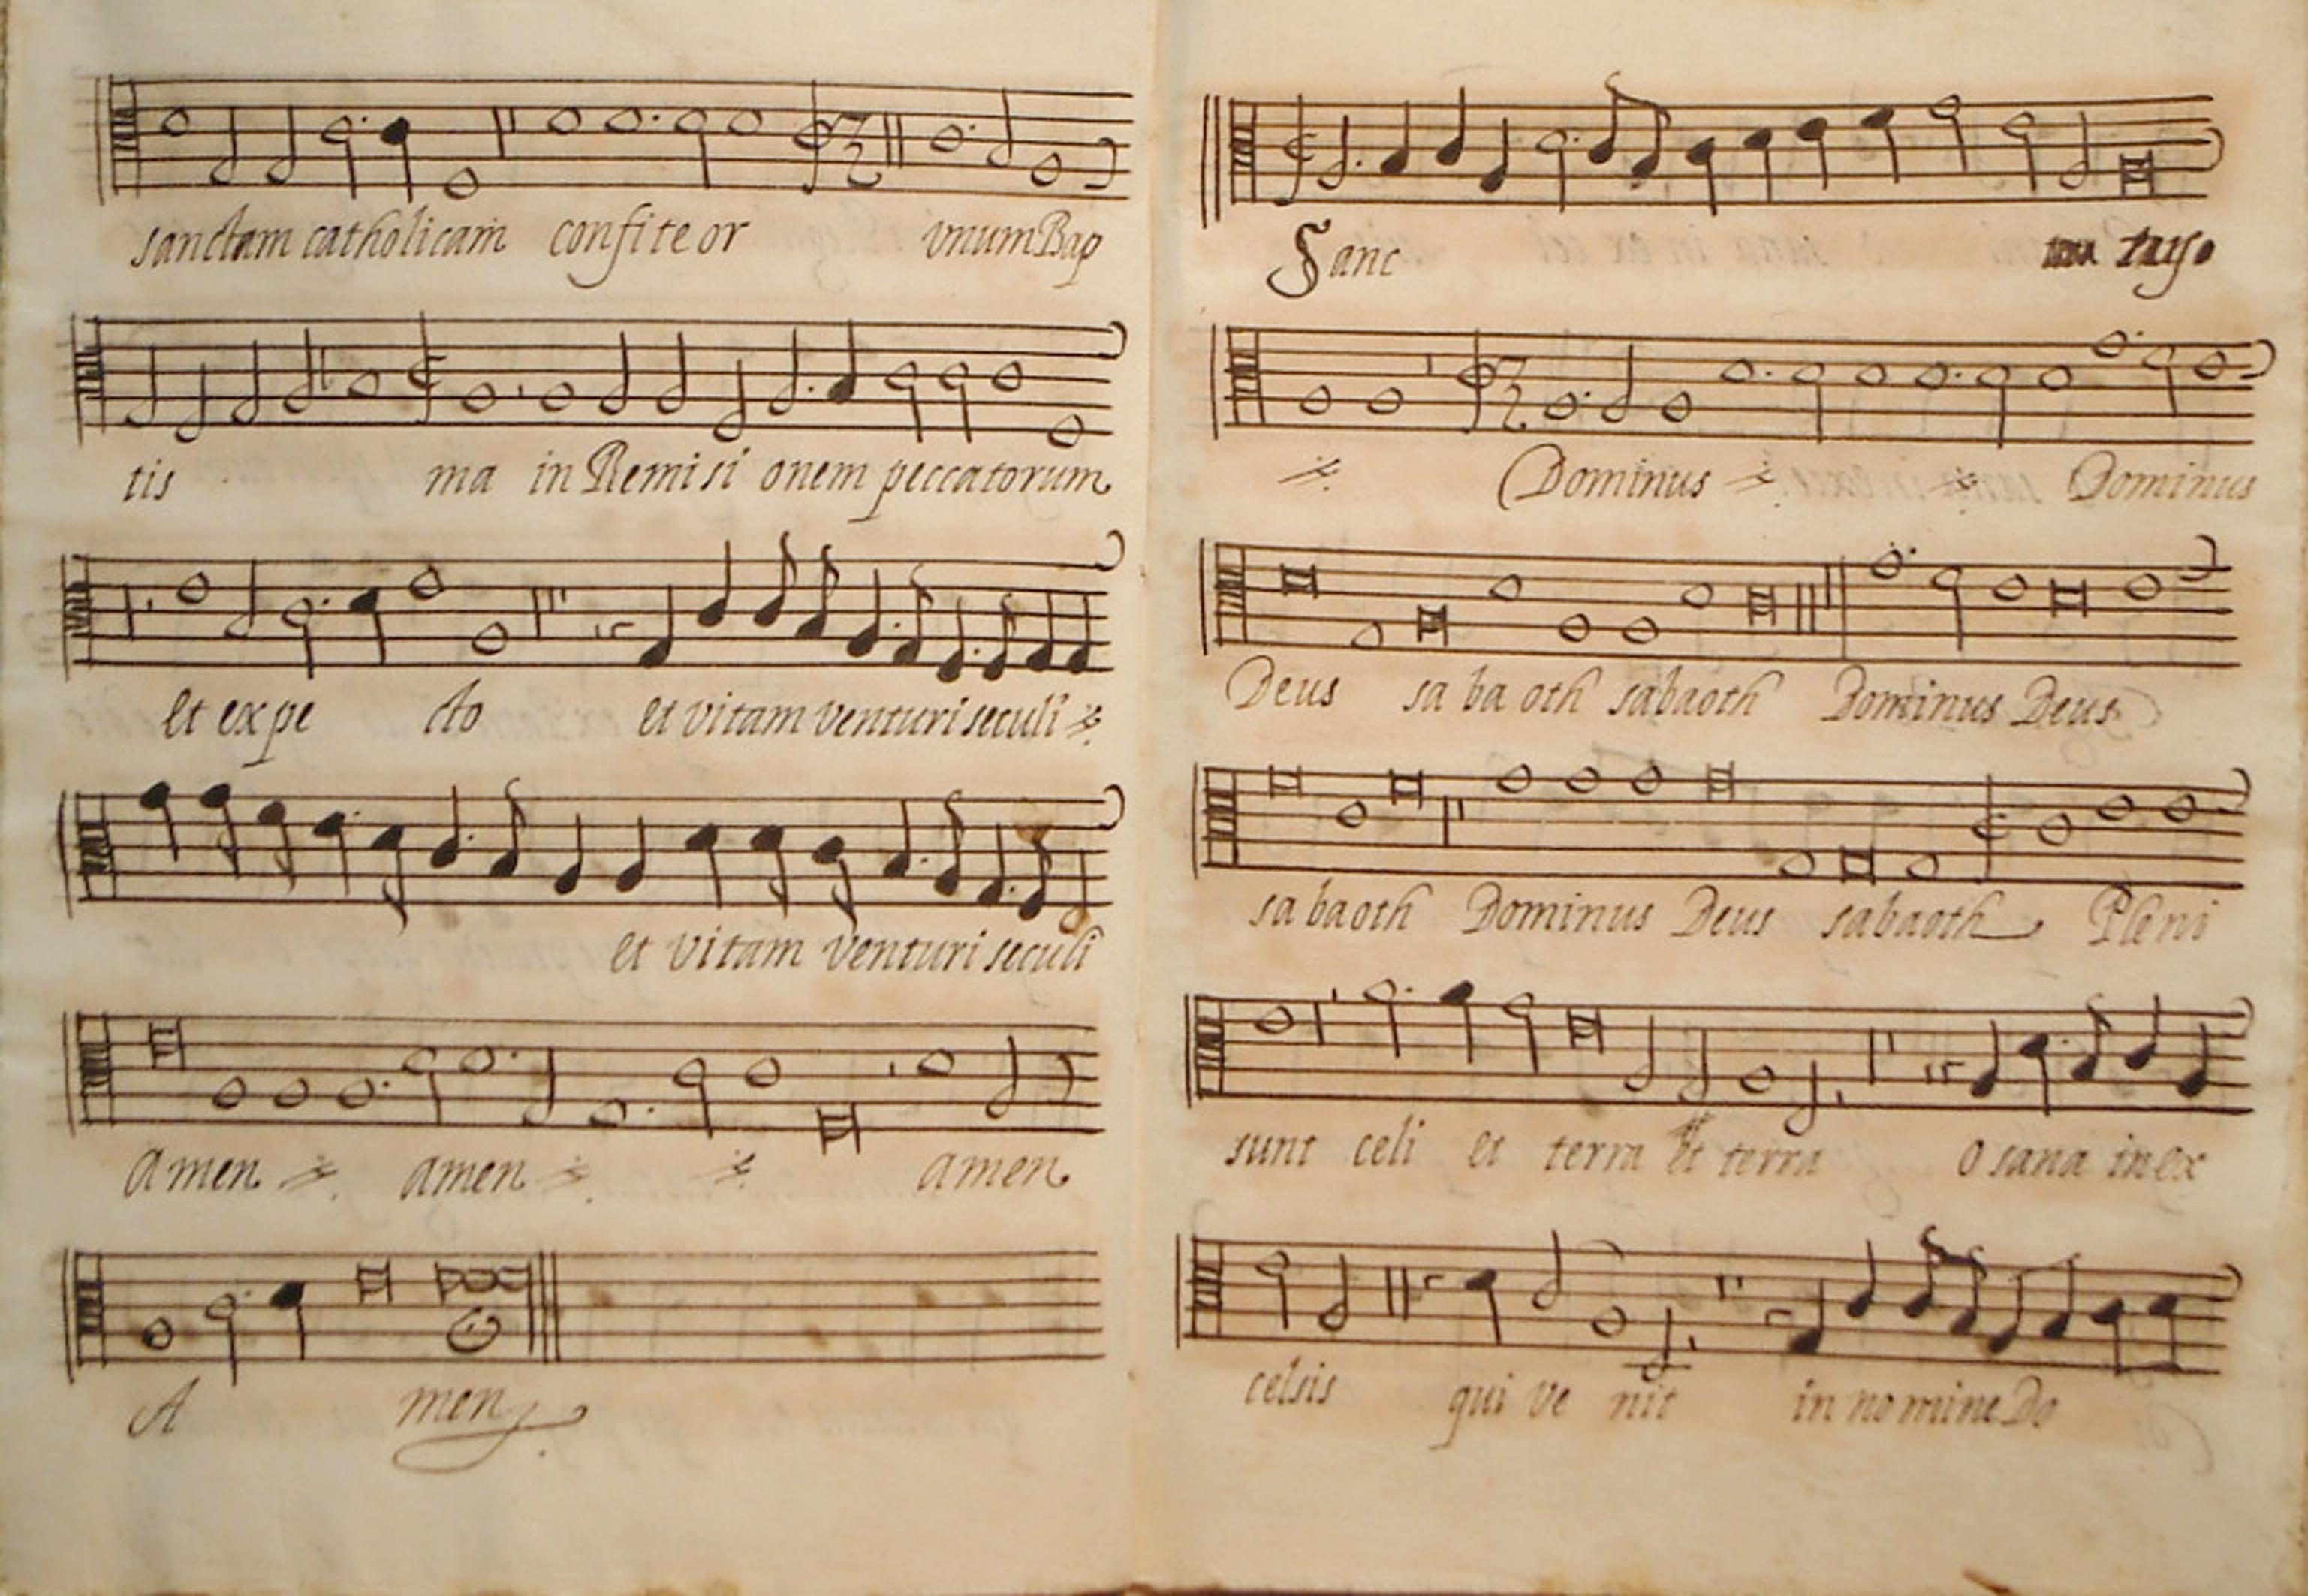 sanctam catholicam confiteor vnum Bap
tis ma in Remisi onem peccatorum
et expe cto et vitam venturi seculi
et vitam venturi seculi
amen amen amen
A men
Sanc tus
Dominus Dominus
Deus sa ba oth sabaoth Dominus Deus
sa baoth Dominus Deus sabaoth Pleni
sunt celi et terra et terra O sana in ex
celsis qui ve nit in no mine Do